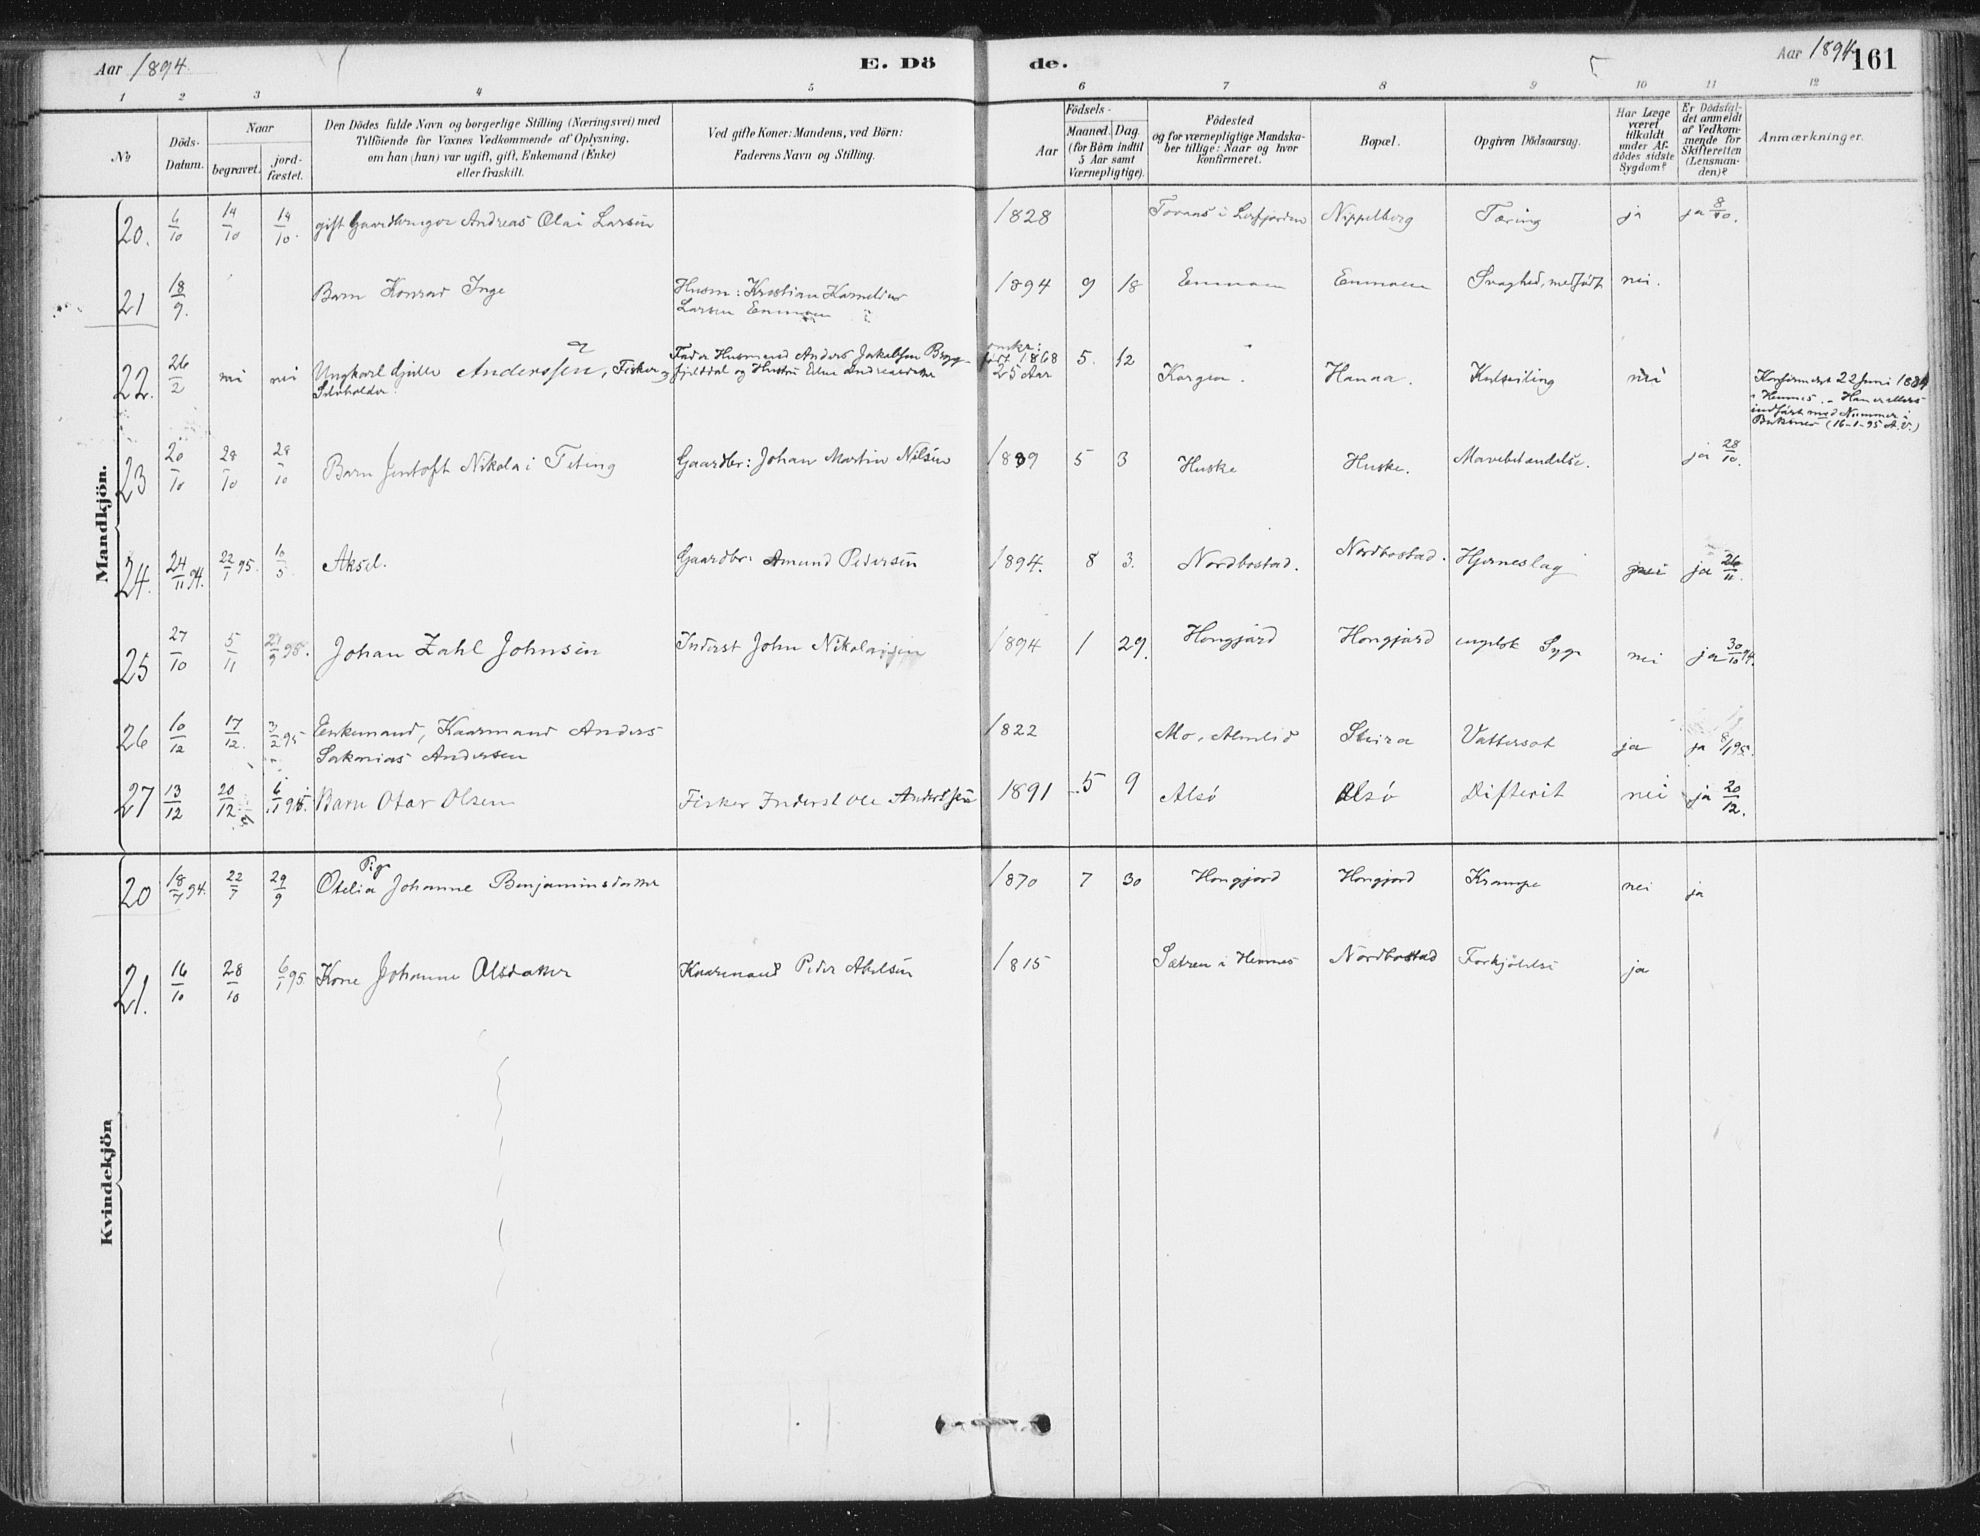 Aar 1894.
E. Dö
de.
Aar 1894
161
1 2 3 4 5 6 7 8 9 10 11 12
No
Döds-
Datum.
Naar
begravet.
jord-
fæstet.
Den Dödes fulde Navn og borgerlige Stilling (Næringsvei) med
Tilföiende for Voxnes Vedkommende af Oplysning,
om han (hun) var ugift, gift, Enkemand (Enke)
eller fraskilt.
Ved gifte Koner: Mandens, ved Börn:
Faderens Navn og Stilling.
Födsels-
Aar
Maaned. Dag.
(for Börn indtil
5 Aar samt
Værnepligtige).
Födested
og for værnepligtige Mandska-
ber tillige: Naar og hvor
konfirmeret.
Bopæl.
Opgiven Dödsaarsag.
Har Læge
været
tilkaldt
under Af-
dödes sidste
Sygdom?
Er Dödsfal-
det anmeldt
af Vedkom-
mende for
Skifteretten
(Lensman-
den)?
Anmærkninger.
Mandkjön.
20. 6/10 14/10 14/10. gift Gaardbruger Andreas Olai Larsen 1828 Toraas i Lerfjorden Nippelberg Tæring ja ja 8/10.
21 18/9. Barn Konrad Inge Husm: Kristian Kornelius 1894 9 18 Enmoen Enmoen Svaghed, medfödt nei.
Larsen Enmoen
22. 26/2 nei nei Ungkarl Andersen, Fisker og Fader Husmand Anders Jakobsen Bryg- 1868 5. 12 Korgen. Hanaa. nei Konfirmeret 22 Juni 1884
Selvholder. fjelddal og Hustru Andreasdatter 25 Aar i Hemnes.
indfört med Nummer i
(16-1-95 A.V.)
23 20/10 28/10 28/10 Barn Jentoft Nikolai Teting Gaardbr: Johan Martin Nilsen 1889 5 3 Huske Huske. Mavebetændelse. ja 28/10.
24. 24/11 94. 22/1 95. 10/5 Aksel. Gaardbr: Amund Pedersen 1894. 8 3. Nordbostad. Nordbostad. Hjerneslag nei ja 26/11.
25 27/10 5/11 98. Johan Zahl Johnsen Inderst John Nikolaisen 1894 1 29. Hongjord Hongjord engelsk Syge nei ja 30/10 94.
26 10/12 17/12. 3/2 95 Enkemand, Kaarmand Anders 1822 Mo, Almlid Stira Vattersot ja ja 8/1 95.
Sakarias Andersen
27 13/12 20/12. 6/1 95. Barn Otar Olsen Fisker Inderst Ole Anderssen 1891 5 9 Alsö Alsö Difterit nei ja 20/12.
Kvindekjön
20 18/7 94. 22/7 29/9 Pige Otelia Johanne Benjaminsdatter 1870 7 30 Hongjord Hongjord Krampe nei ja
21. 16/10 28/10 6/1 95 Kone Johanne Olsdatter Kaarmand Peder Abelsen 1815 Sætren i Hemnes Nordbostad Forkjölelse ja